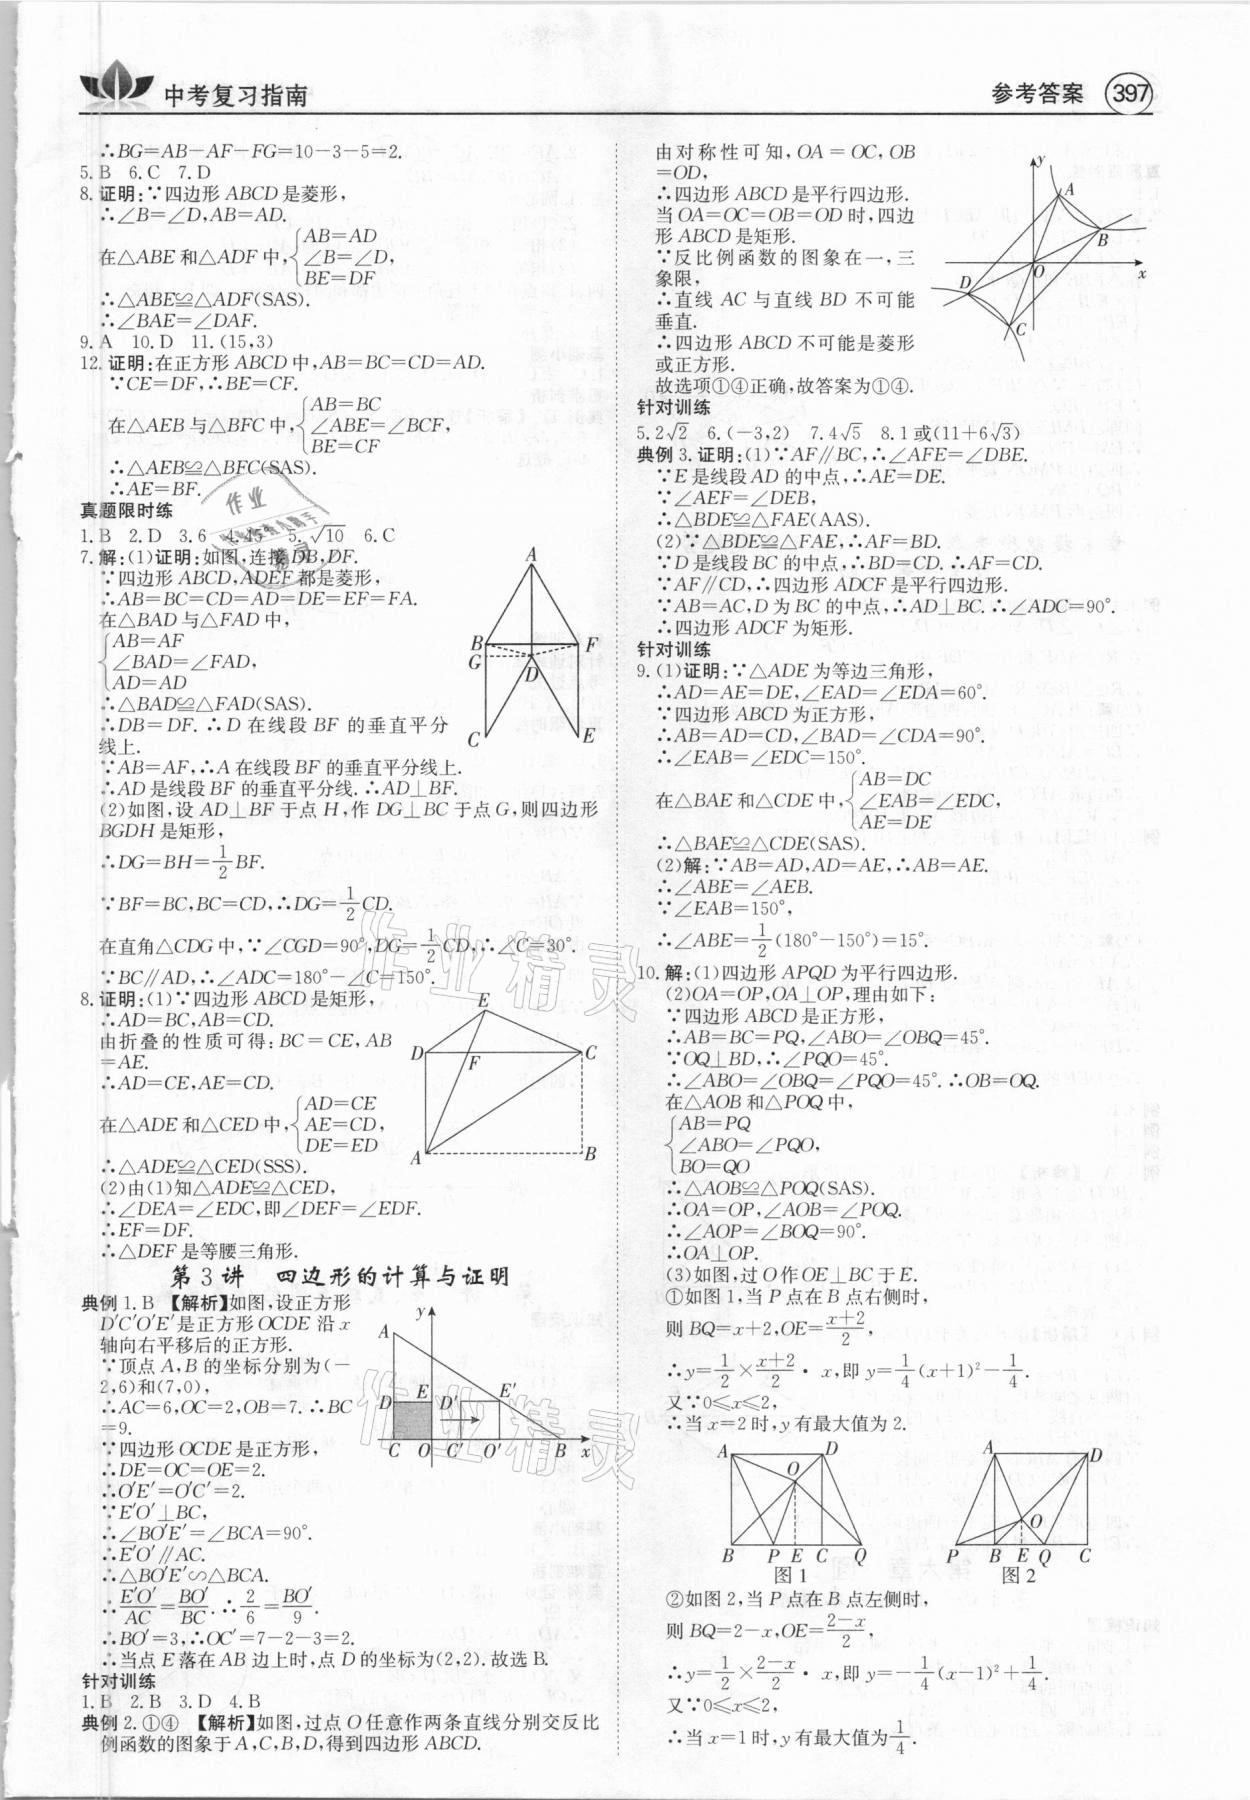 中考复习指南
参考答案 397
∴BG=AB-AF-FG=10-3-5=2.
5.B 6.C 7.D
8.证明:∵四边形ABCD是菱形,
∴∠B=∠D,AB=AD.
在△ABE和△ADF中,{AB=AD
∠B=∠D,
BE=DF
∴△ABE≌△ADF(SAS).
∴∠BAE=∠DAF.
9.A 10.D 11.(15,3)
12.证明:在正方形ABCD中,AB=BC=CD=AD.
∵CE=DF,∴BE=CF.
在△AEB与△BFC中,{AB=BC
∠ABE=∠BCF,
BE=CF
∴△AEB≌△BFC(SAS).
∴AE=BF.
真题限时练
1.B 2.D 3.6 5.√10 6.C
7.解:(1)证明:如图,连接DB,DF.
∵四边形ABCD,ADEF都是菱形,
∴AB=BC=CD=AD=DE=EF=FA.
在△BAD与△FAD中,
{AB=AF
∠BAD=∠FAD,
AD=AD
∴△BAD≌△FAD(SAS).
∴DB=DF.∴D在线段BF的垂直平分
线上.
∵AB=AF,∴A在线段BF的垂直平分线上.
∴AD是线段BF的垂直平分线.∴AD⊥BF.
(2)如图,设AD⊥BF于点H,作DG⊥BC于点G,则四边形
BGDH是矩形,
∴DG=BH=1/2BF.
∵BF=BC,BC=CD,∴DG=1/2CD.
在直角△CDG中,∵∠CGD=90°,DG=1/2CD,∴∠C=30°.
∵BC∥AD,∴∠ADC=180°-∠C=150°.
8.证明:(1)∵四边形ABCD是矩形,
∴AD=BC,AB=CD.
由折叠的性质可得:BC=CE,AB
=AE.
∴AD=CE,AE=CD.
在△ADE和△CED中,{AD=CE
AE=CD,
DE=ED
∴△ADE≌△CED(SSS).
(2)由(1)知△ADE≌△CED,
∴∠DEA=∠EDC,即∠DEF=∠EDF.
∴EF=DF.
∴△DEF是等腰三角形.
第3讲 四边形的计算与证明
典例1.B 【解析】如图,设正方形
D'C'O'E'是正方形OCDE沿x
轴向右平移后的正方形.
∵顶点A,B的坐标分别为(-
2,6)和(7,0),
∴AC=6,OC=2,OB=7.∴BC
=9.
∵四边形OCDE是正方形,
∴DE=OC=OE=2.
∴O'E'=O'C'=2.
∵E'O'⊥BC,
∴∠BO'E'=∠BCA=90°.
∴E'O'∥AC.
∴△BO'E'∽△BCA.
∴E'O'/AC=BO'/BC.∴2/6=BO'/9.
∴BO'=3,∴OC'=7-2-3=2.
∴当点E落在AB边上时,点D的坐标为(2,2).故选B.
针对训练
1.B 2.B 3.D 4.B
典例2.①④ 【解析】如图,过点O任意作两条直线分别交反比
例函数的图象于A,C,B,D,得到四边形ABCD.
由对称性可知,OA=OC,OB
=OD,
∴四边形ABCD是平行四边形.
当OA=OC=OB=OD时,四边
形ABCD是矩形.
∵反比例函数的图象在一,三
象限,
∴直线AC与直线BD不可能
垂直.
∴四边形ABCD不可能是菱形
或正方形.
故选项①④正确,故答案为①④.
针对训练
5.2√2 6.(-3,2) 7.4√5 8.1或(11+6√3)
典例3.证明:(1)∵AF∥BC,∴∠AFE=∠DBE.
∵E是线段AD的中点,∴AE=DE.
∵∠AEF=∠DEB,
∴△BDE≌△FAE(AAS).
(2)∵△BDE≌△FAE,∴AF=BD.
∵D是线段BC的中点,∴BD=CD.∴AF=CD.
∵AF∥CD,∴四边形ADCF是平行四边形.
∵AB=AC,D为BC的中点,∴AD⊥BC.∴∠ADC=90°.
∴四边形ADCF为矩形.
针对训练
9.(1)证明:∵△ADE为等边三角形,
∴AD=AE=DE,∠EAD=∠EDA=60°.
∵四边形ABCD为正方形,
∴AB=AD=CD,∠BAD=∠CDA=90°.
∴∠EAB=∠EDC=150°.
在△BAE和△CDE中,{AB=DC
∠EAB=∠EDC,
AE=DE
∴△BAE≌△CDE(SAS).
(2)解:∵AB=AD,AD=AE,∴AB=AE.
∴∠ABE=∠AEB.
∵∠EAB=150°,
∴∠ABE=1/2(180°-150°)=15°.
10.解:(1)四边形APQD为平行四边形.
(2)OA=OP,OA⊥OP,理由如下:
∵四边形ABCD是正方形,
∴AB=BC=PQ,∠ABO=∠OBQ=45°.
∵OQ⊥BD,∴∠PQO=45°.
∴∠ABO=∠OBQ=∠PQO=45°.∴OB=OQ.
在△AOB和△POQ中,
{AB=PQ
∠ABO=∠PQO,
BO=QO
∴△AOB≌△POQ(SAS).
∴OA=OP,∠AOB=∠POQ.
∴∠AOP=∠BOQ=90°.
∴OA⊥OP.
(3)如图,过O作OE⊥BC于E.
①如图1,当P点在B点右侧时,
则BQ=x+2,OE=(x+2)/2,
∴y=1/2×(x+2)/2·x,即y=1/4(x+1)²-1/4.
又∵0≤x≤2,
∴当x=2时,y有最大值为2.
图1 图2
②如图2,当P点在B点左侧时,
则BQ=2-x,OE=(2-x)/2,
∴y=1/2×(2-x)/2·x,即y=-1/4(x-1)²+1/4.
又∵0≤x≤2,
∴当x=1时,y有最大值为1/4.
作业精灵
作业精灵